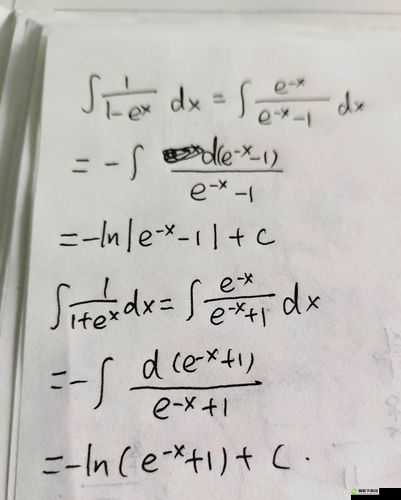 ∫ 1/(1-eˣ) dx = ∫ e⁻ˣ/(e⁻ˣ-1) dx
= -∫ d(e⁻ˣ-1)/(e⁻ˣ-1)
= -ln|e⁻ˣ-1| + C
∫ 1/(1+eˣ) dx = ∫ e⁻ˣ/(e⁻ˣ+1) dx
= -∫ d(e⁻ˣ+1)/(e⁻ˣ+1)
= -ln(e⁻ˣ+1) + C.